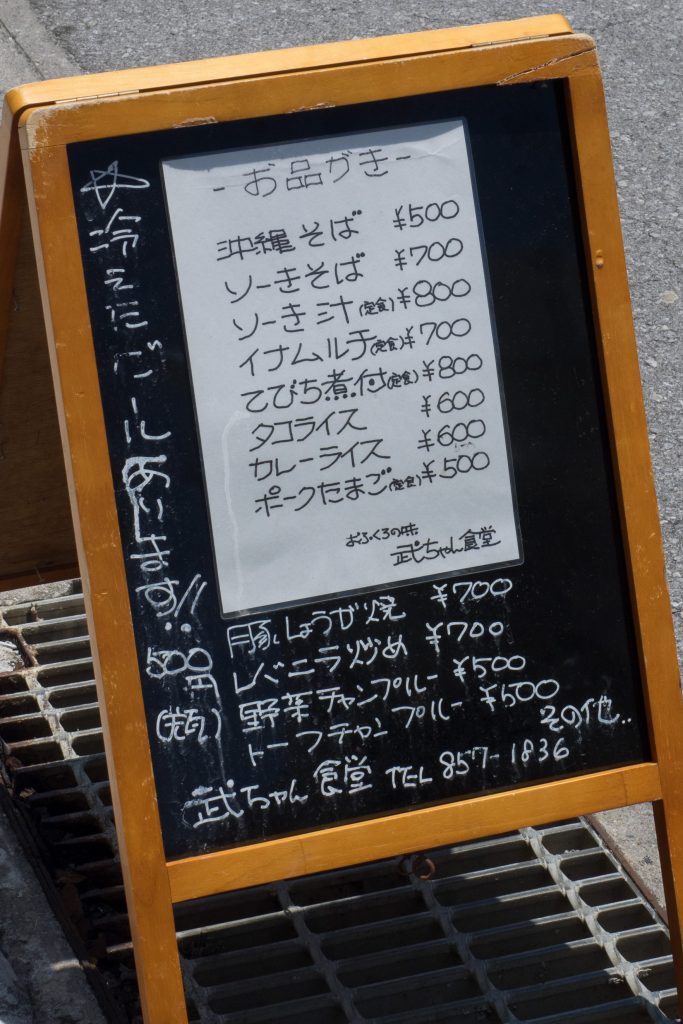 -お品がき-
沖縄そば ¥500
ソーきそば ¥700
ソーき汁(定食)¥800
イナムルチ(定食)¥700
てびち煮付(定食)¥800
タコライス ¥600
カレーライス ¥600
ポークたまご(定食)¥500
おふくろの味
武ちゃん食堂
冷えたビールあります!!
500円
(大瓦)
豚しょうが焼 ¥700
レバニラ炒め ¥700
野菜チャンプルー ¥500
トーフチャンプルー ¥500
その他..
武ちゃん食堂 TEL 857-1836